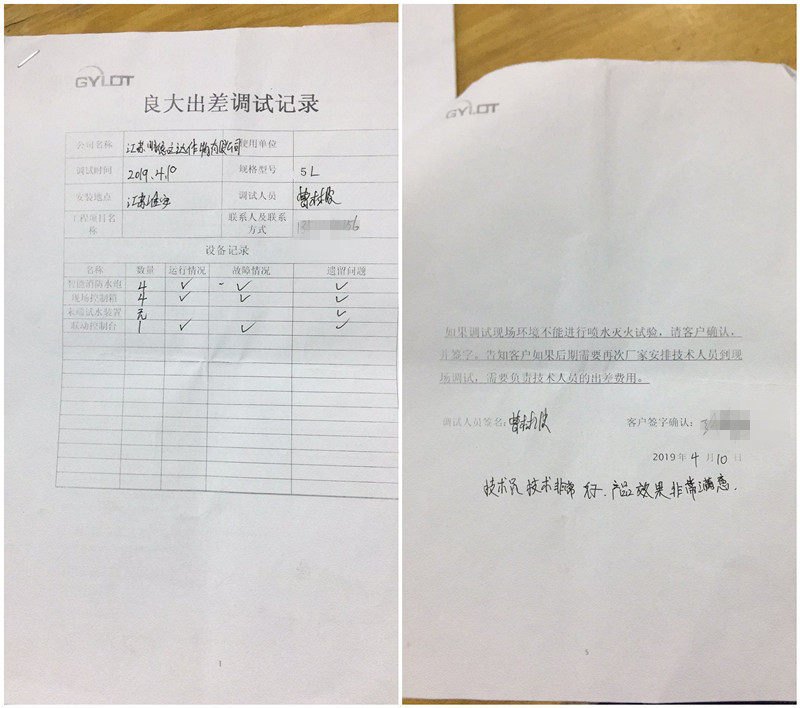 GYLOT
良大出差调试记录
公司名称 江苏 有限公司 使用单位
调试时间 2019.4.10 规格型号 5L
安装地点 江苏淮安 调试人员
工程项目名称 联系人及联系方式 56
设备记录
名称 数量 运行情况 故障情况 遗留问题
智能消防水炮 4 ✓ ✓ ✓
现场控制箱 4 ✓ ✓ ✓
末端试水装置 无 ✓
联动控制台 1 ✓ ✓ ✓
1
GYLOT
如果调试现场环境不能进行喷水灭火试验,请客户确认,
并签字。告知客户如果后期需要再次厂家安排技术人员到现
场调试,需要负责技术人员的出差费用。
调试人员签名: 客户签字确认:
2019年4月10日
技术员技术非常好.产品效果非常满意.
5